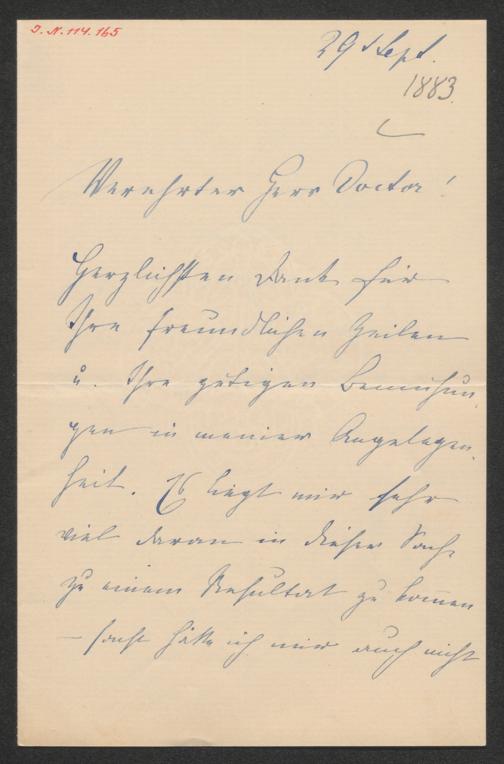 I. N. 114.165
29 Sept.
1883.
Verehrter Herr Doctor!
Herzlichsten Dank für
Ihre freundlichen Zeilen
u. Ihre gütigen Bemühun
gen in meiner Angelegen
heit. Es liegt mir sehr
viel daran in dieser Sache
zu einem Resultat zu komen
– sonst hätte ich mir auch nicht